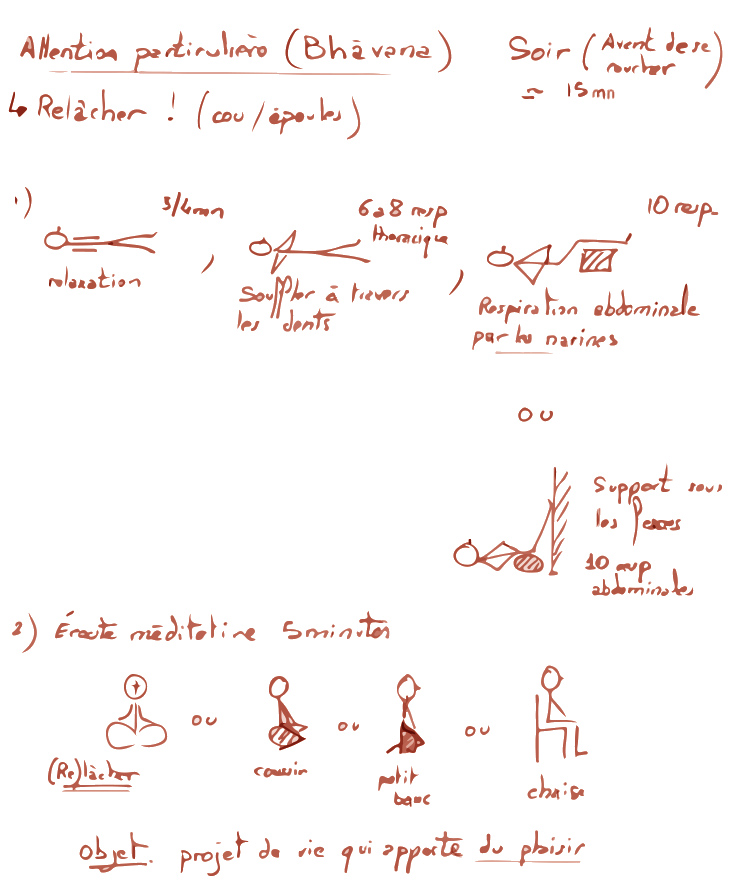 Attention particulière (Bhāvana)
Soir (Avant de se
coucher)
≃ 15 mn
↳ Relâcher ! (cou/épaules)
1)
3/4 mn
relaxation
,
6 à 8 resp
thoracique
Souffler à travers
les dents
,
10 resp.
Respiration abdominale
par les narines
ou
Support sous
les fesses
10 resp
abdominales
2) Écoute méditative 5 minutes
ou
ou
ou
(Re)lâcher
coussin
petit
banc
chaise
Objet. projet de vie qui apporte du plaisir